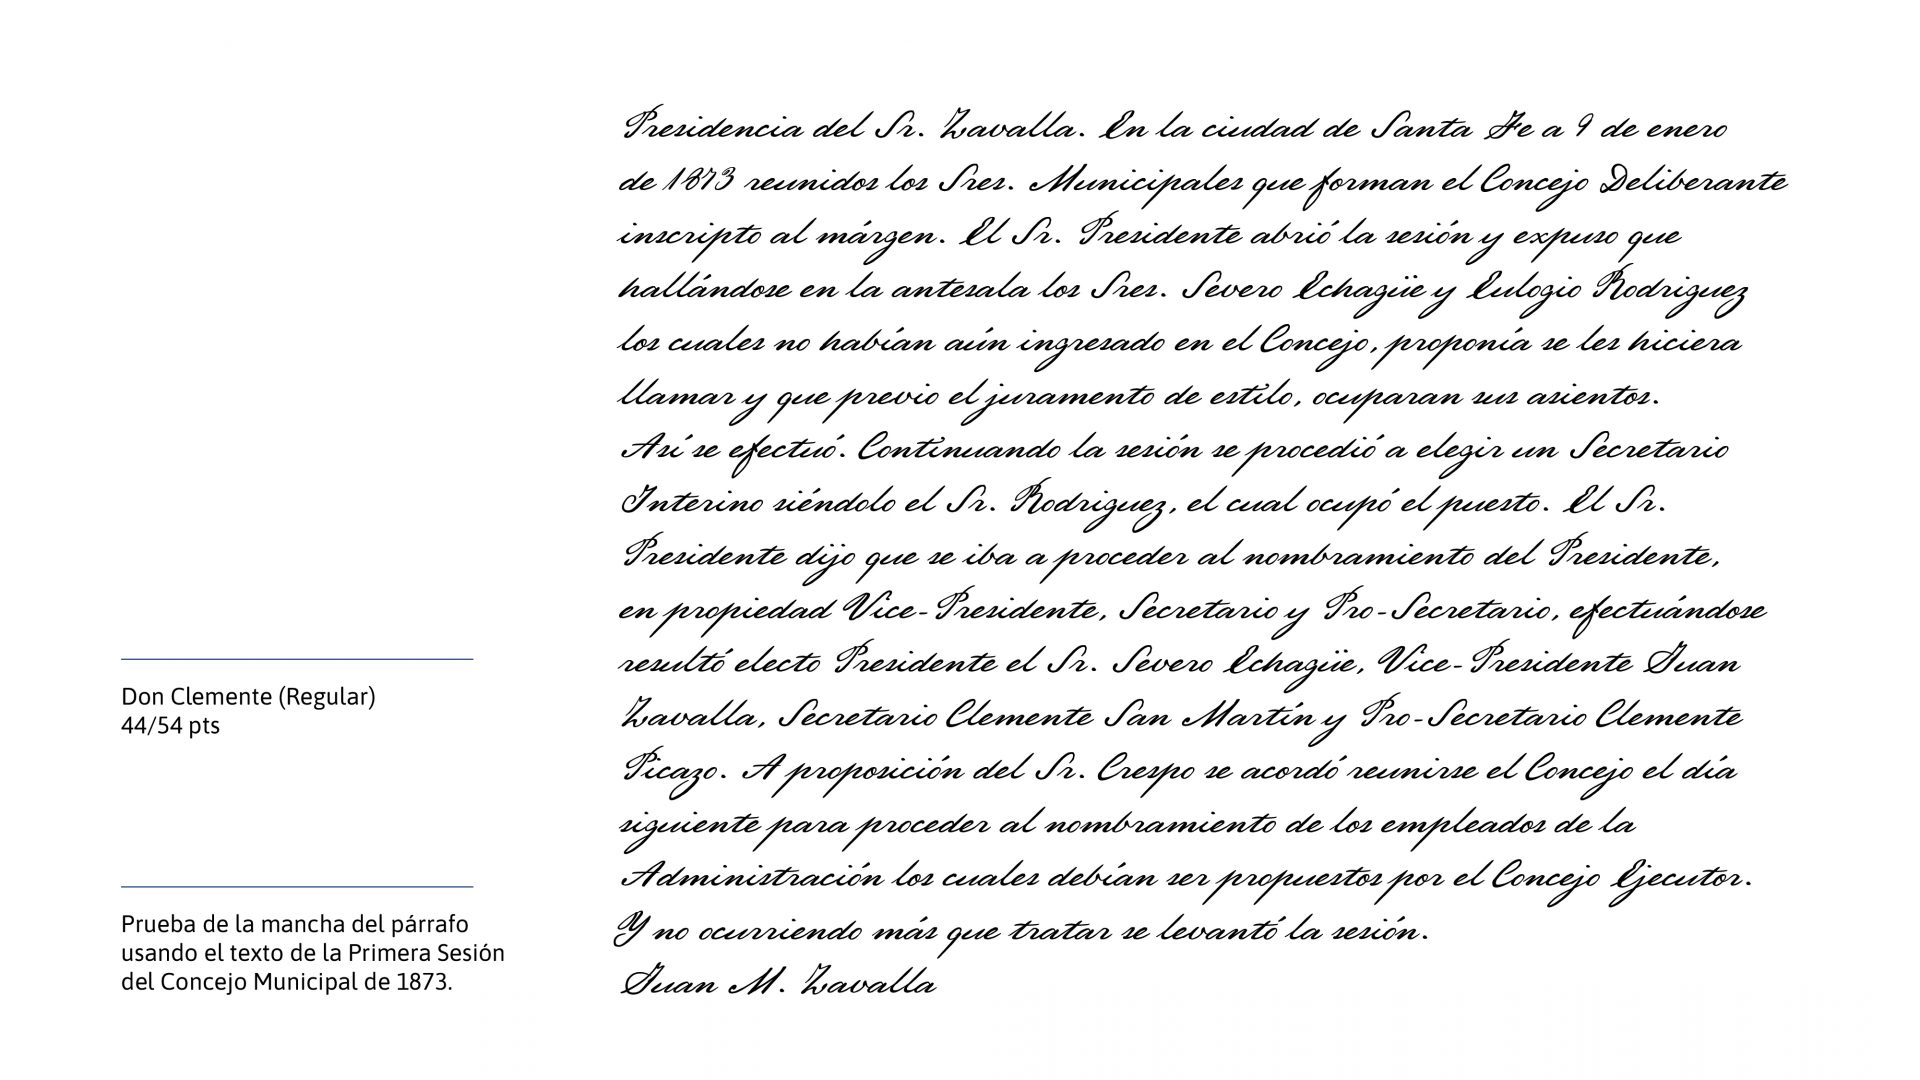 Presidencia del Sr. Zavalla. En la ciudad de Santa Fe a 9 de enero
de 1873 reunidos los Sres. Municipales que forman el Concejo Deliberante
inscripto al márgen. El Sr. Presidente abrió la sesión y expuso que
hallándose en la antesala los Sres. Severo Echagüe y Eulogio Rodriguez
los cuales no habían aún ingresado en el Concejo, proponía se les hiciera
llamar y que previo el juramento de estilo, ocuparan sus asientos.
Así se efectuó. Continuando la sesión se procedió a elegir un Secretario
Interino siéndolo el Sr. Rodriguez, el cual ocupó el puesto. El Sr.
Presidente dijo que se iba a proceder al nombramiento del Presidente,
en propiedad Vice-Presidente, Secretario y Pro-Secretario, efectuándose
resultó electo Presidente el Sr. Severo Echagüe, Vice-Presidente Juan
Zavalla, Secretario Clemente San Martín y Pro-Secretario Clemente
Picazo. A proposición del Sr. Crespo se acordó reunirse el Concejo el día
siguiente para proceder al nombramiento de los empleados de la
Administración los cuales debían ser propuestos por el Concejo Ejecutor.
Y no ocurriendo más que tratar se levantó la sesión.
Juan M. Zavalla
Don Clemente (Regular)
44/54 pts
Prueba de la mancha del párrafo
usando el texto de la Primera Sesión
del Concejo Municipal de 1873.